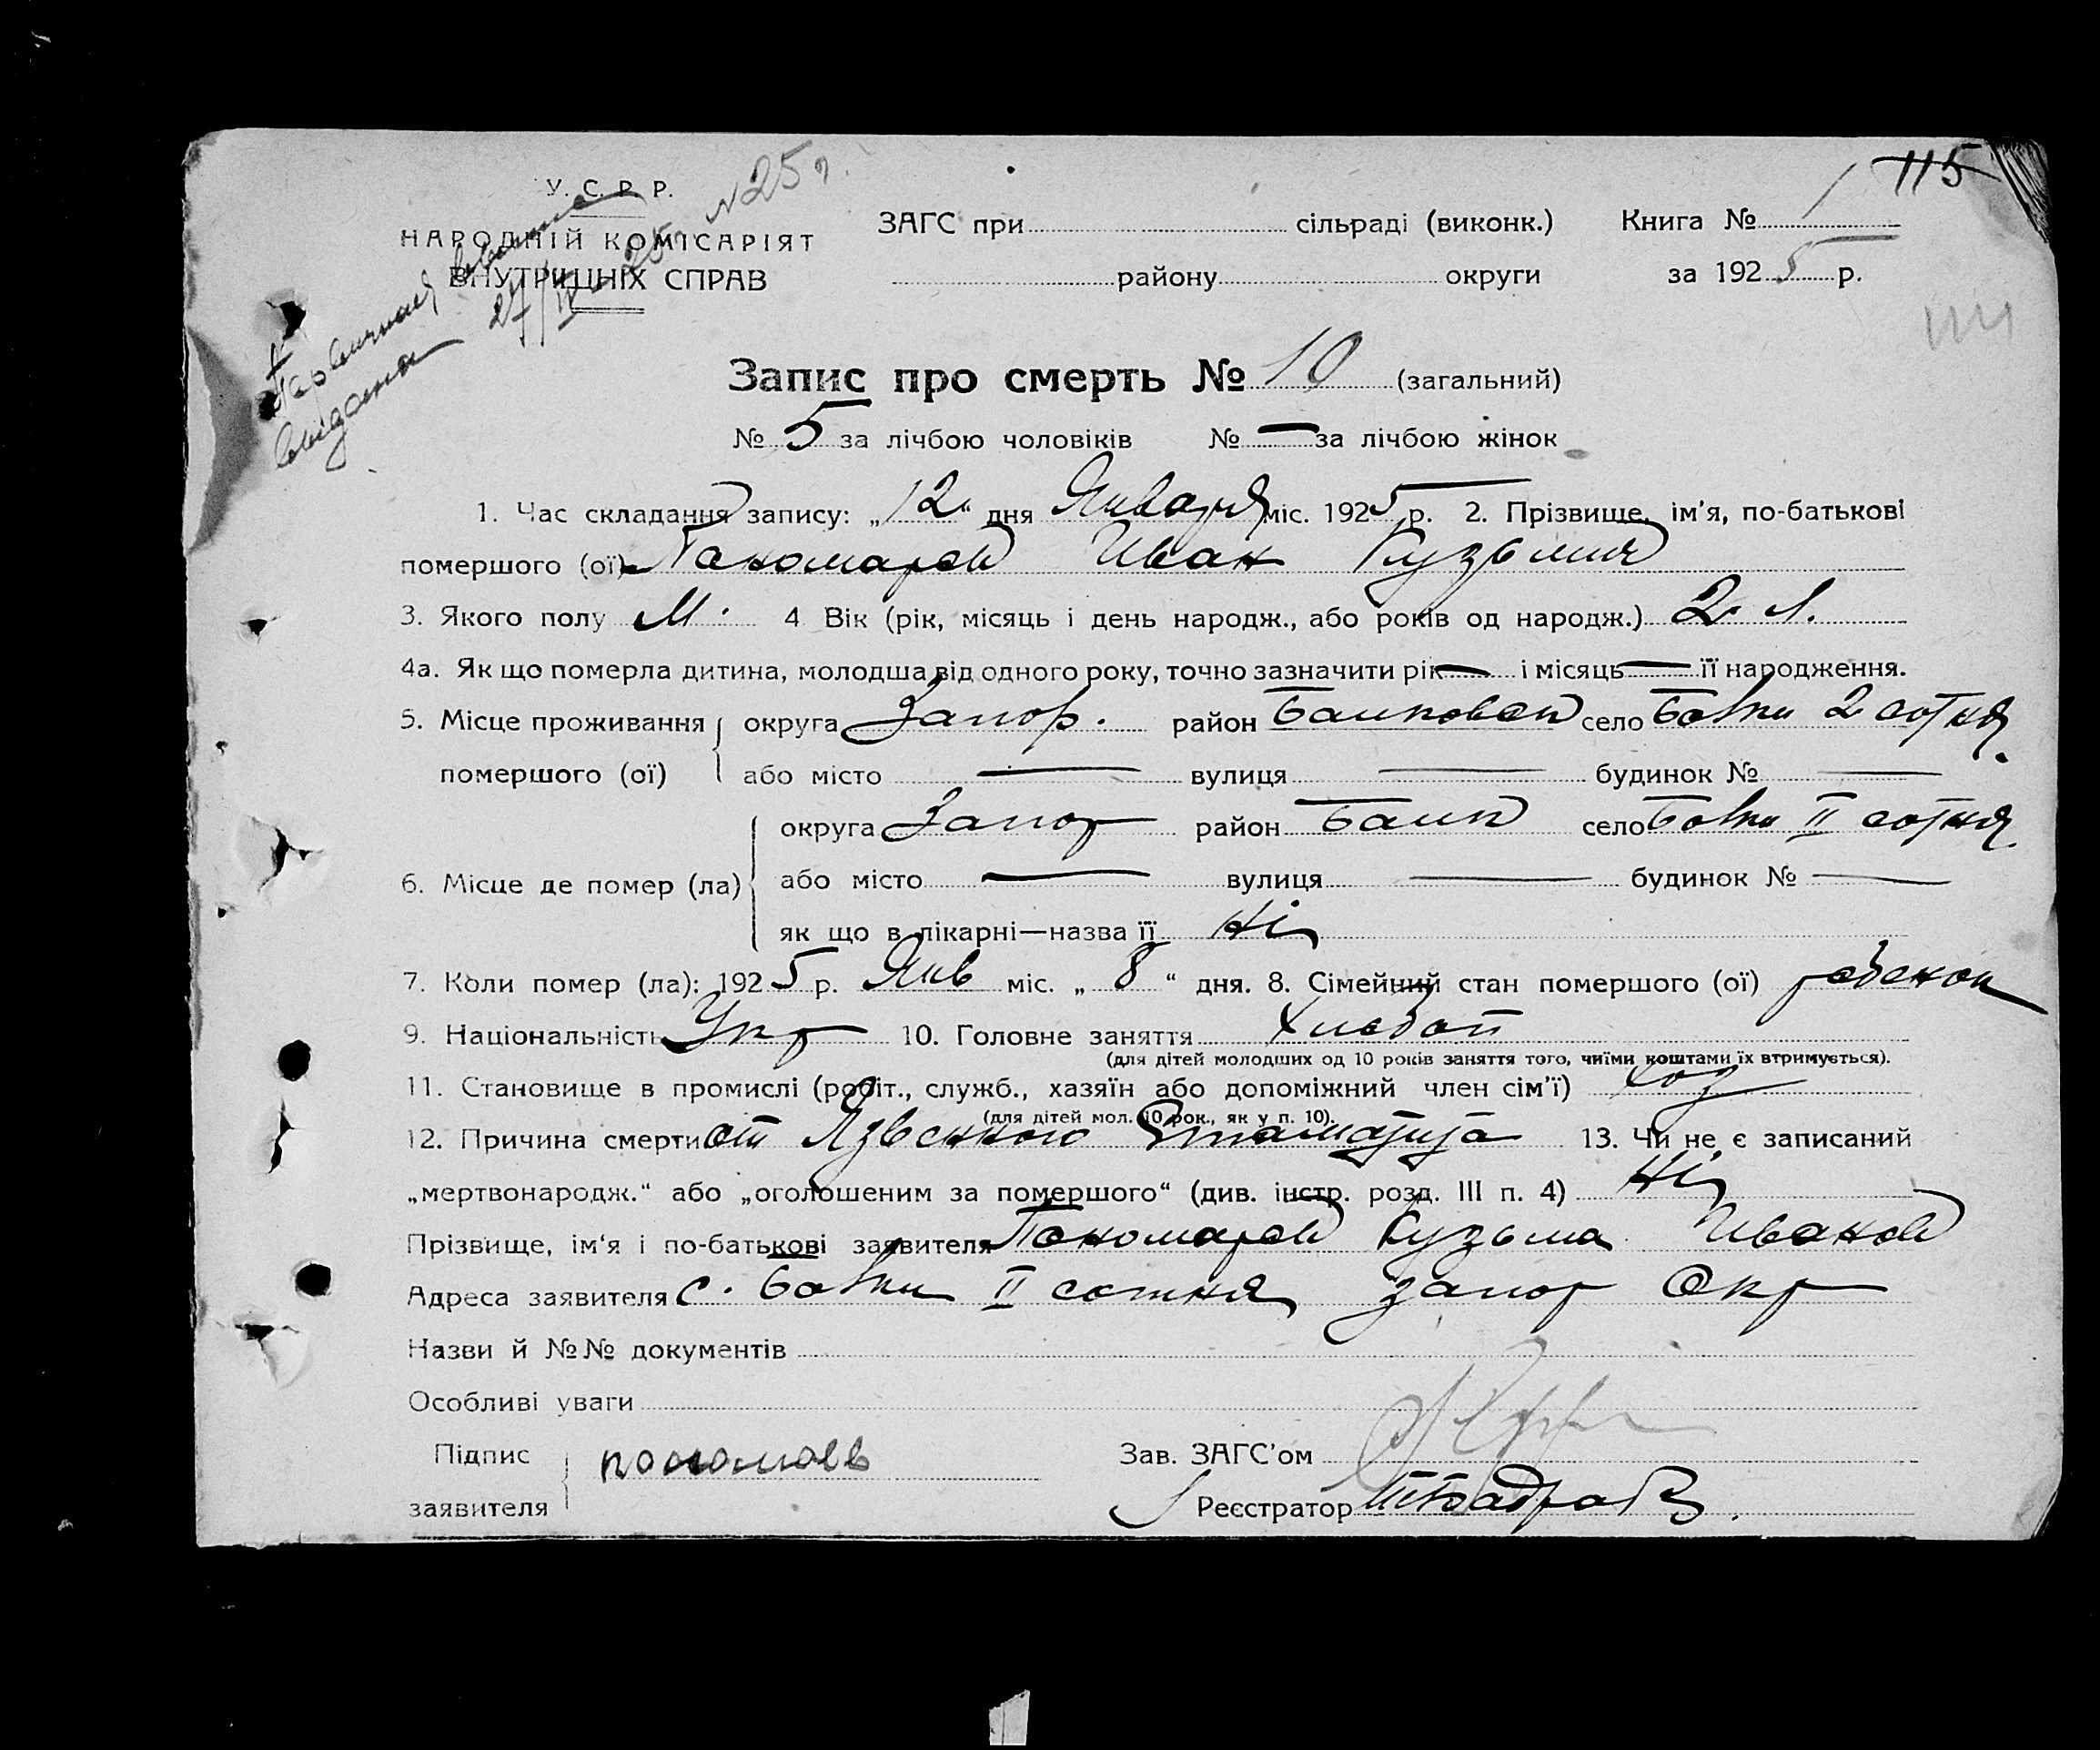 115
У. С. Р. Р.
НАРОДНІЙ КОМІСАРІЯТ
ВНУТРІШНІХ СПРАВ
27/IV 25
ЗАГС при сільраді (виконк.) Книга № 1
району округи за 1925 р.
Запис про смерть № 10 (загальний)
№ 5 за лічбою чоловіків № — за лічбою жінок
1. Час складання запису: „12“ дня Января міс. 1925 р. 2. Прізвище, ім'я, по-батькові
помершого (ої) Пономарев Иван Кузьмич
3. Якого полу М. 4 Вік (рік, місяць і день народж., або років од народж.) 2 л.
4а. Як що померла дитина, молодша від одного року, точно зазначити рік — і місяць — її народження.
5. Місце проживання округа Запор. район село 2 сотня
помершого (ої) або місто — вулиця — будинок № —
округа Запор район село II сотня
6. Місце де помер (ла) або місто — вулиця — будинок № —
як що в лікарні—назва її Ні
7. Коли помер (ла): 1925 р. Янв міс. „8“ дня. 8. Сімейний стан помершого (ої) ребенок
9. Національність Укр 10. Головне заняття Хлебоп
(для дітей молодших од 10 років заняття того, чиїми коштами їх втримується).
11. Становище в промислі (робіт., служб., хазяїн або допоміжний член сім'ї) Хоз
(для дітей мол. 10 рок., як у п. 10).
12. Причина смерти от Язвенного 13. Чи не є записаний
„мертвонародж.“ або „оголошеним за помершого“ (див. інстр. розд. III п. 4) Ні
Прізвище, ім'я і по-батькові заявителя Пономарев Кузьма Иванов
Адреса заявителя с. II сотня Запор Окр
Назви й №№ документів
Особливі уваги
Підпис Зав. ЗАГС'ом
заявителя Реєстратор